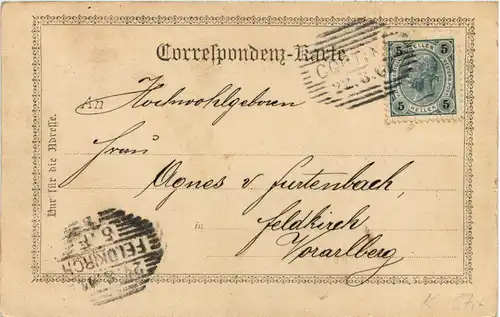 Correspondenz-Karte.
5 HELLER 5
5 HELLER 5
An Hochwohlgeboren
Frau
Agnes v Furtenbach,
in Feldkirch
Vorarlberg
Nur für die Adresse.
FELDKIRCH